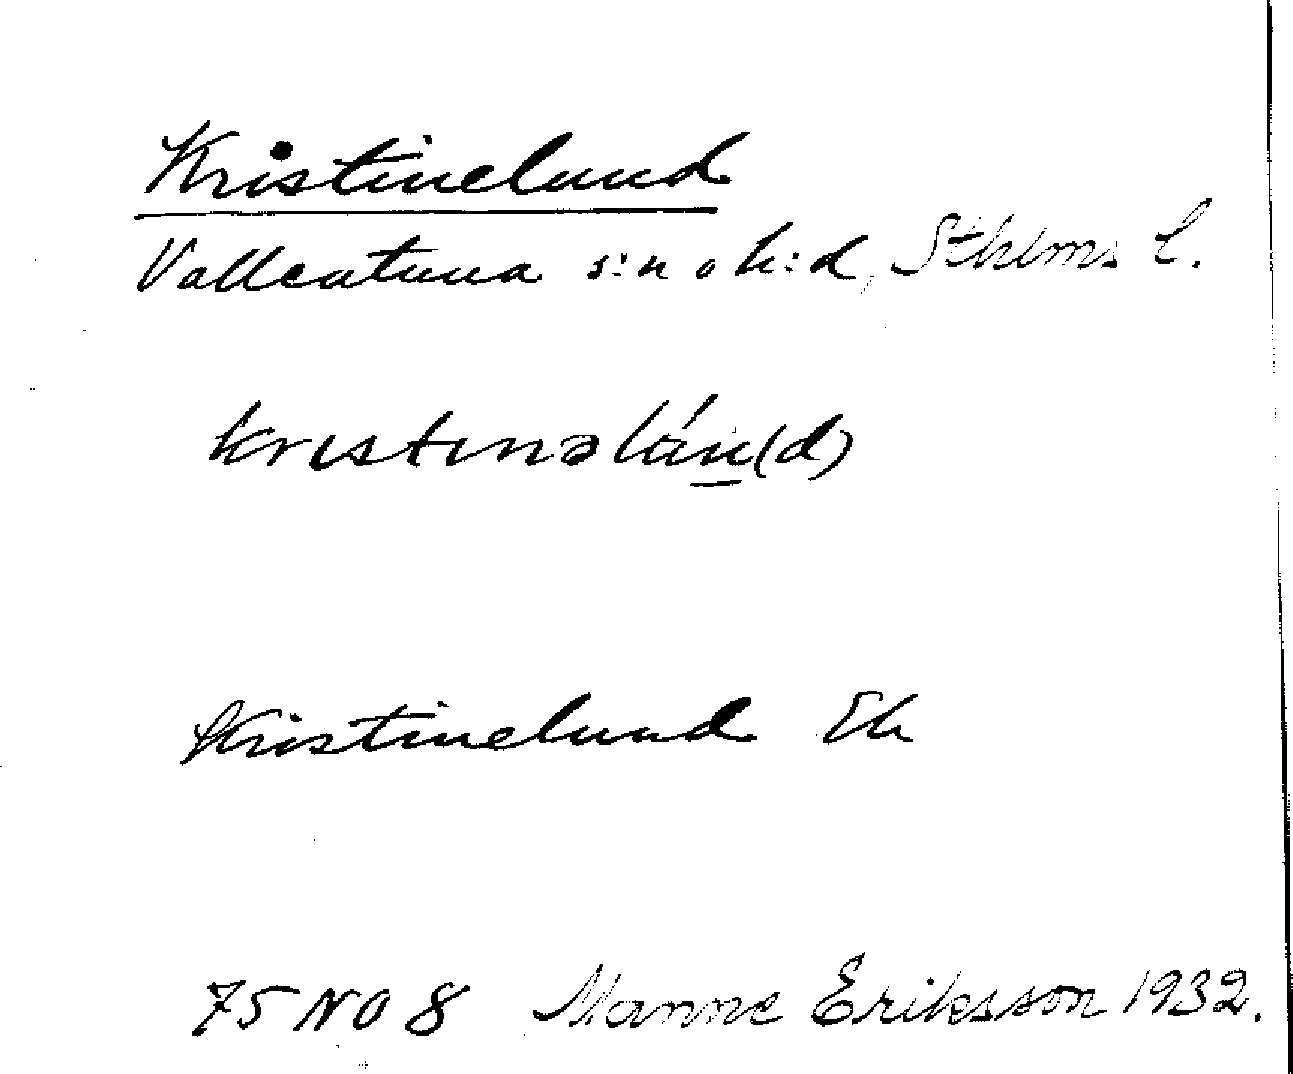 Kristinelund
Vallentuna s:n o h:d, Sthlms l.
kristinəlún(d)
Kristinelund Ek
75 NO 8 Manne Eriksson 1932.